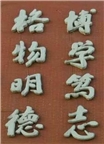 博学笃志
格物明德